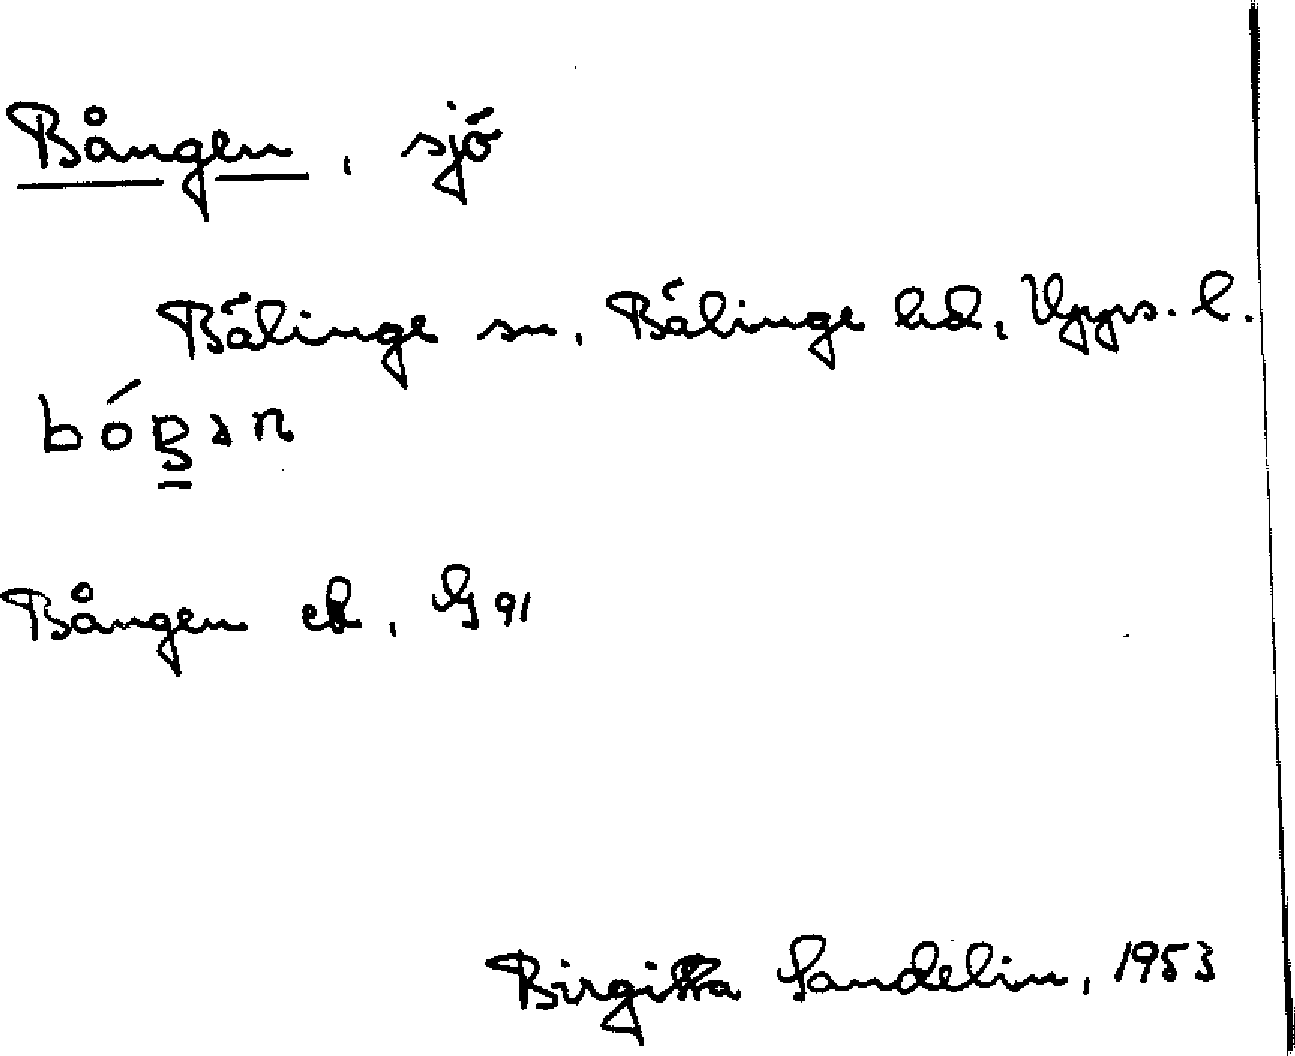 Bången, sjö
Bälinge sn, Bälinge hd, Upps. l.
Bången ek, G 91
Birgitta Sandelin, 1953